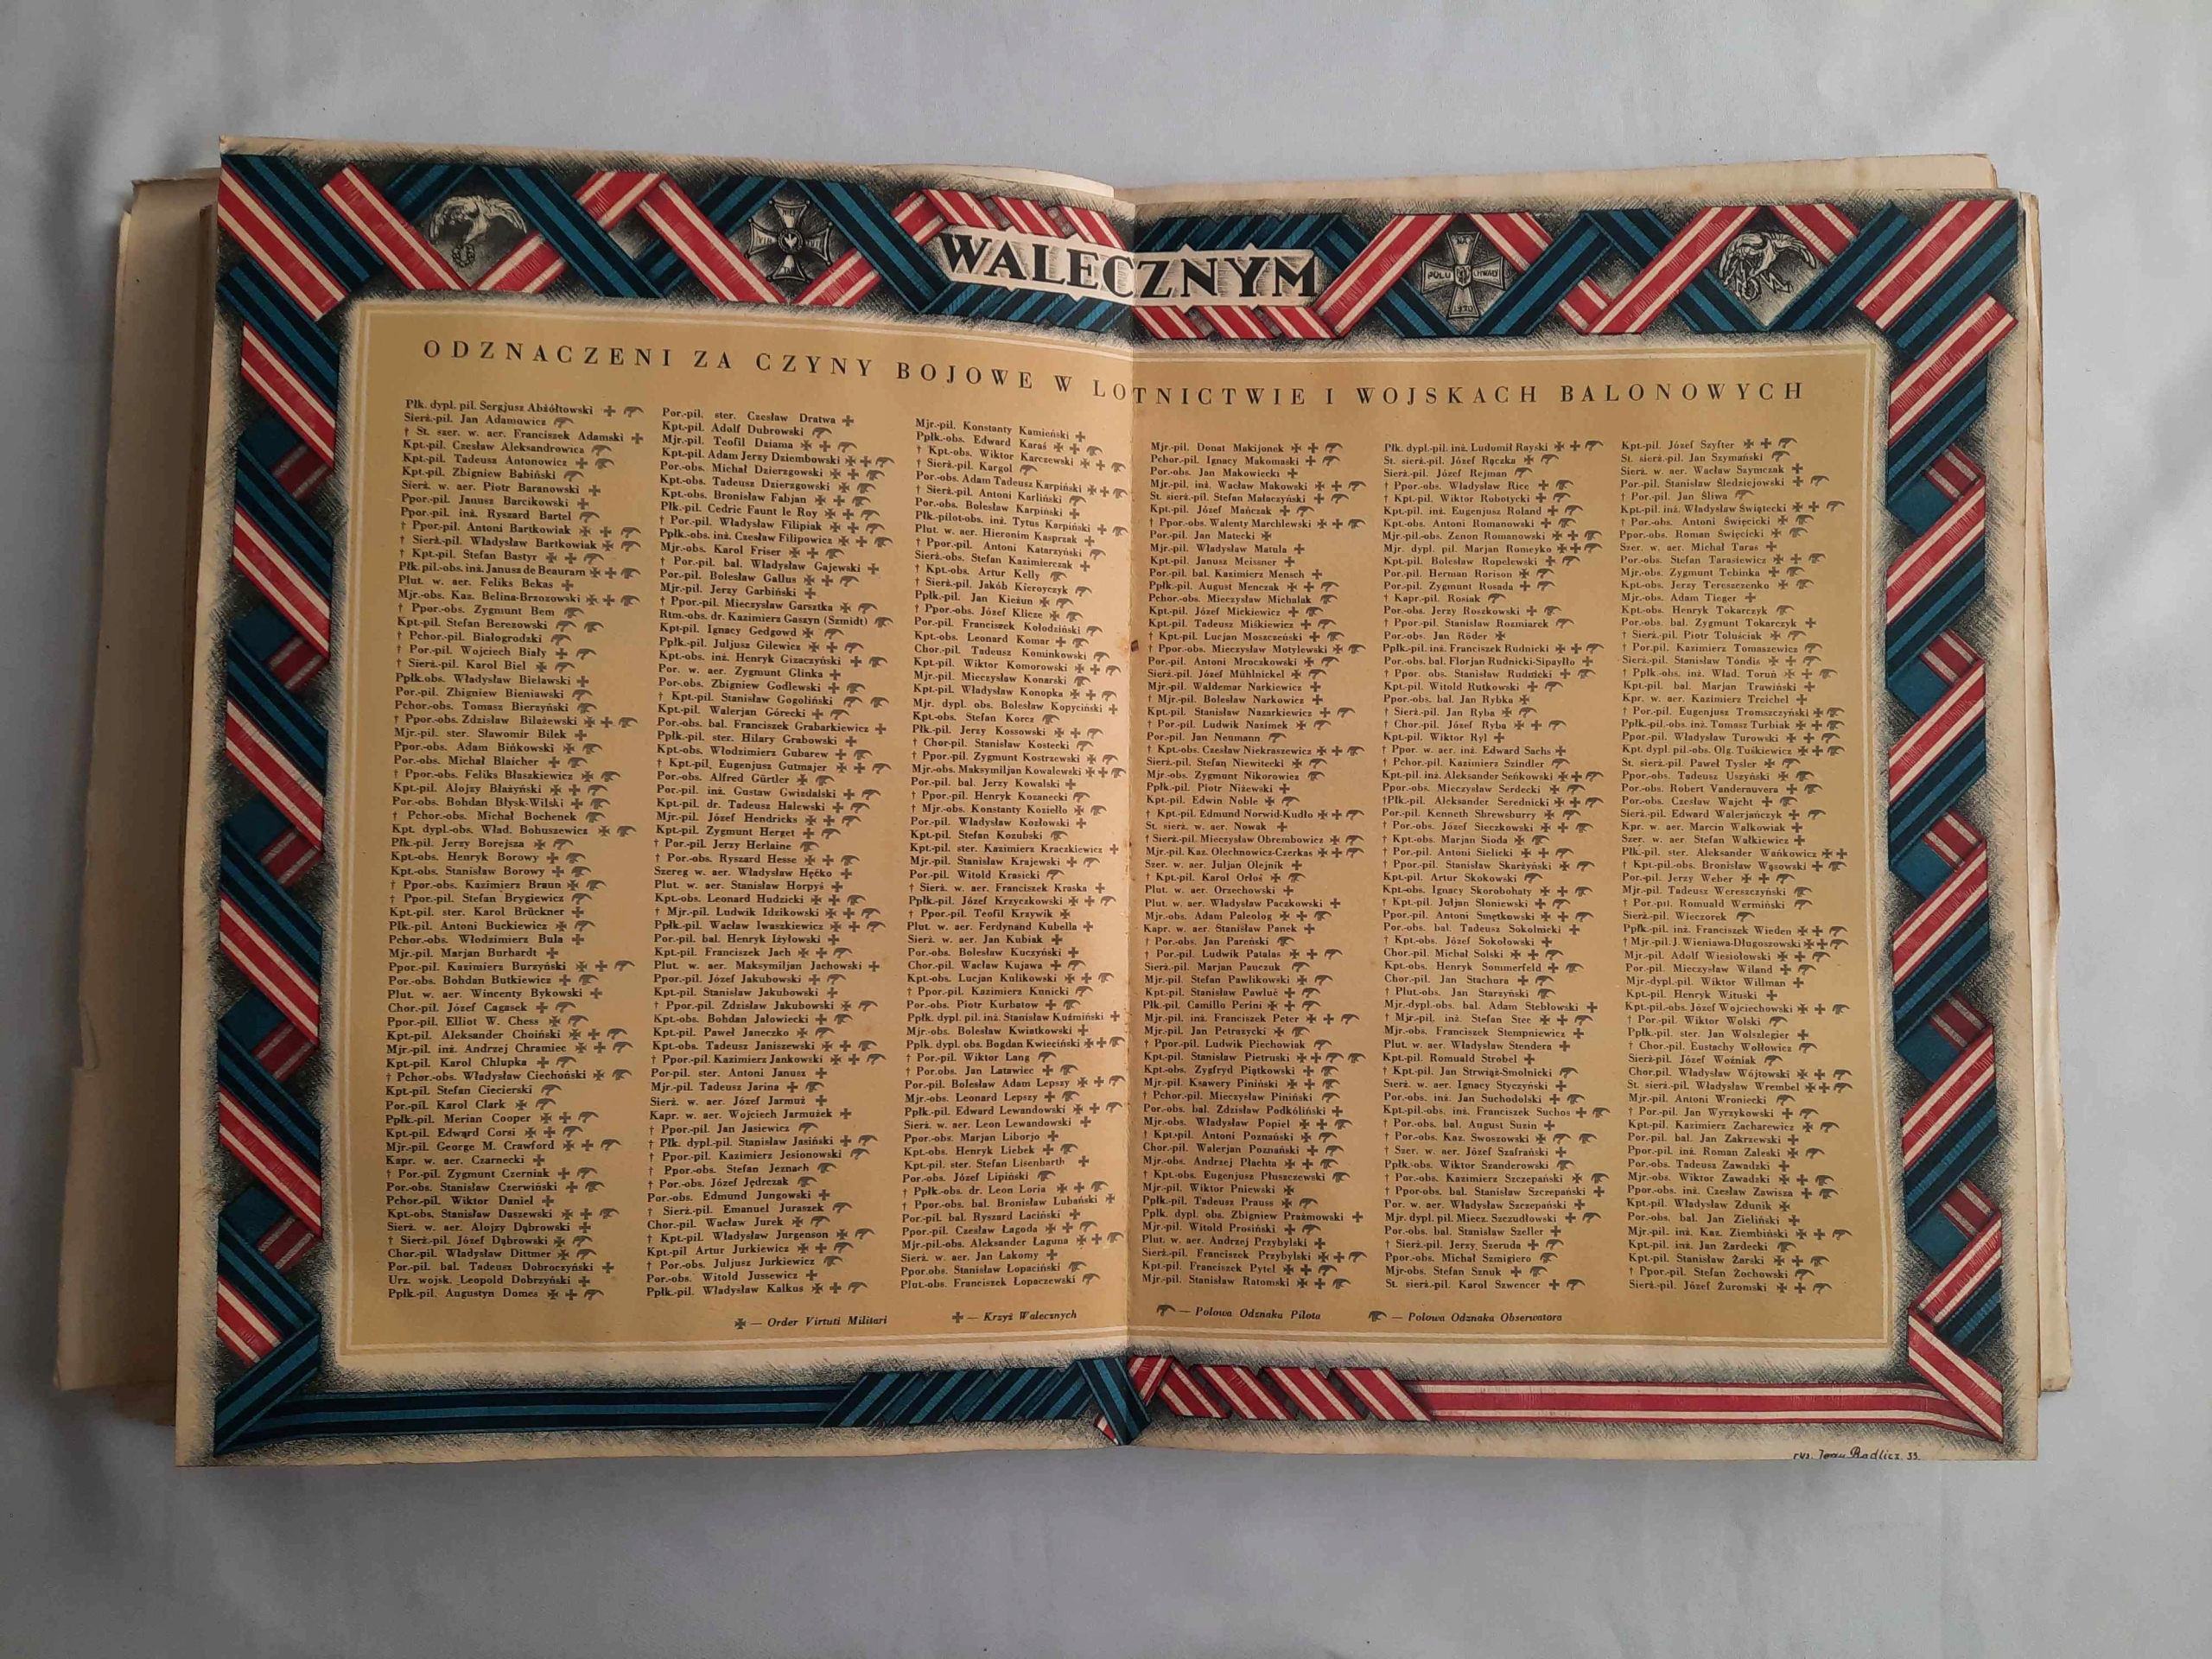 WALECZNYM
ODZNACZENI ZA CZYNY BOJOWE W LOTNICTWIE I WOJSKACH BALONOWYCH
Płk. dypl. pil. Sergjusz Abżółtowski
Sierż.-pil. Jan Adamowicz
† St. szer. w. aer. Franciszek Adamski
Kpt.-pil. Czesław Aleksandrowicz
Kpt.-pil. Tadeusz Antonowicz
Kpt.-pil. Zbigniew Babiński
Sierż. w. aer. Piotr Baranowski
Ppor.-pil. Janusz Barcikowski
Ppor.-pil. inż. Ryszard Bartel
† Ppor.-pil. Antoni Bartkowiak
† Sierż.-pil. Władysław Bartkowiak
† Kpt.-pil. Stefan Bastyr
Płk. pil.-obs. inż. Janusz de Beauram
Plut. w. aer. Feliks Bekas
Mjr.-obs. Kaz. Belina-Brzozowski
† Ppor.-obs. Zygmunt Bem
Kpt.-pil. Stefan Berezowski
† Pchor.-pil. Białogrodzki
† Por.-pil. Wojciech Biały
† Sierż.-pil. Karol Biel
Ppłk.obs. Władysław Bielawski
Por.-pil. Zbigniew Bieniawski
Pchor.-obs. Tomasz Bierzyński
† Ppor.-obs. Zdzisław Bilażewski
Mjr.-pil. ster. Sławomir Bilek
Ppor.-obs. Adam Bińkowski
Por.-obs. Michał Blaicher
† Ppor.-obs. Feliks Błaszkiewicz
Kpt.-pil. Alojzy Błażyński
Por.-obs. Bohdan Błysk-Wilski
† Pchor.-obs. Michał Bochenek
Kpt. dypl.-obs. Wład. Bohuszewicz
Płk.-pil. Jerzy Borejsza
Kpt.-obs. Henryk Borowy
Kpt.-obs. Stanisław Borowy
† Ppor.-obs. Kazimierz Braun
† Ppor.-pil. Stefan Brygiewicz
Kpt.-pil. ster. Karol Brückner
Płk.-pil. Antoni Buckiewicz
Pchor.-obs. Włodzimierz Bula
Mjr.-pil. Marjan Burhardt
Ppor.-pil. Kazimierz Burzyński
Por.-obs. Bohdan Butkiewicz
Plut. w. aer. Wincenty Bykowski
Chor.-pil. Józef Cagasek
Ppor.-pil. Elliot W. Chess
Kpt.-pil. Aleksander Choiński
Mjr.-pil. inż. Andrzej Chramiec
Kpt.-pil. Karol Chlupka
† Pchor.-obs. Władysław Ciechoński
Kpt.-pil. Stefan Ciecierski
Por.-pil. Karol Clark
Ppłk.-pil. Merian Cooper
Kpt.-pil. Edward Corsi
Mjr.-pil. George M. Crawford
Kapr. w. aer. Czarnecki
† Por.-pil. Zygmunt Czerniak
Por.-obs. Stanisław Czerwiński
Pchor.-pil. Wiktor Daniel
Kpt.-obs. Stanisław Daszewski
Sierż. w. aer. Alojzy Dąbrowski
† Sierż.-pil. Józef Dąbrowski
Chor.-pil. Władysław Dittmer
Por.-pil. bal. Tadeusz Dobroczyński
Urz. wojsk. Leopold Dobrzyński
Ppłk.-pil. Augustyn Domes
Por.-pil. ster. Czesław Dratwa
Kpt.-pil. Adolf Dubrowski
Mjr.-pil. Teofil Dziama
Kpt.-pil. Adam Jerzy Dziembowski
Por.-obs. Michał Dzierzgowski
Kpt.-obs. Tadeusz Dzierzgowski
Kpt.-obs. Bronisław Fabjan
Płk.-pil. Cedric Faunt le Roy
† Por.-pil. Władysław Filipiak
Ppłk.-obs. inż. Czesław Filipowicz
Mjr.-obs. Karol Friser
† Por.-pil. bal. Władysław Gajewski
Por.-pil. Bolesław Gallus
Mjr.-pil. Jerzy Garbiński
† Ppor.-pil. Mieczysław Garsztka
Rtm.-obs. dr. Kazimierz Gaszyn (Szmidt)
Kpt-pil. Ignacy Gedgowd
Ppłk.-pil. Juljusz Gilewicz
Kpt.-obs. inż. Henryk Gizaczyński
Por. w. aer. Zygmunt Glinka
Por.-obs. Zbigniew Godlewski
† Kpt.-pil. Stanisław Gogoliński
Kpt.-pil. Walerjan Górecki
Por.-obs. bal. Franciszek Grabarkiewicz
Ppłk.-pil. ster. Hilary Grabowski
Kpt.-obs. Włodzimierz Gubarew
† Kpt.-pil. Eugenjusz Gutmajer
Por.-obs. Alfred Gürtler
Por.-pil. inż. Gustaw Gwizdalski
Kpt.-pil. dr. Tadeusz Halewski
Mjr.-pil. Józef Hendricks
Kpt.-pil. Zygmunt Herget
† Por.-pil. Jerzy Herlaine
† Por.-obs. Ryszard Hesse
Szereg w. aer. Władysław Hęćko
Plut. w. aer. Stanisław Horpyś
Kpt.-obs. Leonard Hudzicki
† Mjr.-pil. Ludwik Idzikowski
Ppłk.-pil. Wacław Iwaszkiewicz
Por.-pil. bal. Henryk Iżyłowski
Kpt.-pil. Franciszek Jach
Plut. w. aer. Maksymiljan Jachowski
Ppor.-pil. Józef Jakubowski
Kpt.-pil. Stanisław Jakubowski
† Ppor.-pil. Zdzisław Jakubowski
Kpt.-obs. Bohdan Jałowiecki
Kpt.-pil. Paweł Janeczko
Kpt.-obs. Tadeusz Janiszewski
† Ppor.-pil. Kazimierz Jankowski
Por-pil. ster. Antoni Janusz
Mjr.-pil. Tadeusz Jarina
Sierż. w. aer. Józef Jarmuż
Kapr. w. aer. Wojciech Jarmużek
† Ppor.-pil. Jan Jasiewicz
† Płk. dypl.-pil. Stanisław Jasiński
† Ppor.-pil. Kazimierz Jesionowski
† Ppor.-obs. Stefan Jeznach
† Por.-obs. Józef Jędrczak
Por.-obs. Edmund Jungowski
† Sierż.-pil. Emanuel Juraszek
Chor.-pil. Wacław Jurek
† Kpt.-pil. Władysław Jurgenson
Kpt-pil Artur Jurkiewicz
† Por.-obs. Juljusz Jurkiewicz
Por.-obs. Witold Jussewicz
Ppłk.-pil. Władysław Kalkus
Mjr.-pil. Konstanty Kamieński
Ppłk.-obs. Edward Karaś
† Kpt.-obs. Wiktor Karczewski
† Sierż.-pil. Kargol
Por.-obs. Adam Tadeusz Karpiński
† Sierż.-pil. Antoni Karliński
Por.-obs. Bolesław Karpiński
Płk.-pilot-obs. inż. Tytus Karpiński
Plut. w. aer. Hieronim Kasprzak
† Ppor.-pil. Antoni Katarzyński
Sierż.-obs. Stefan Kazimierczak
† Kpt.-obs. Artur Kelly
† Sierż.-pil. Jakób Kieroyczyk
Ppłk.-pil. Jan Kieżun
† Ppor.-obs. Józef Klicze
Por.-pil. Franciszek Kołodziński
Kpt.-obs. Leonard Komar
Chor.-pil. Tadeusz Kominkowski
Kpt.-pil. Wiktor Komorowski
Mjr.-pil. Mieczysław Konarski
Kpt.-pil. Władysław Konopka
Mjr. dypl. obs. Bolesław Kopyciński
Kpt.-obs. Stefan Korcz
Płk.-pil. Jerzy Kossowski
† Chor-pil. Stanisław Kostecki
† Ppor.-pil. Zygmunt Kostrzewski
Mjr.-obs. Maksymiljan Kowalewski
Por.-pil. bal. Jerzy Kowalski
† Ppor.-pil. Henryk Kozanecki
† Mjr.-obs. Konstanty Koziełło
Por.-pil. Władysław Kozłowski
Kpt.-pil. Stefan Kozubski
Kpt.-pil. ster. Kazimierz Kraczkiewicz
Mjr.-pil. Stanisław Krajewski
Por.-pil. Witold Krasicki
† Sierż. w. aer. Franciszek Kraska
Ppłk.-pil. Józef Krzyczkowski
† Ppor.-pil. Teofil Krzywik
Plut. w. aer. Ferdynand Kubella
Sierż. w. aer. Jan Kubiak
Por.-obs. Bolesław Kuczyński
Chor.-pil. Wacław Kujawa
Kpt.-obs. Lucjan Kulikowski
† Ppor.-pil. Kazimierz Kunicki
Por.-obs. Piotr Kurbatow
Ppłk. dypl. pil. inż. Stanisław Kuźmiński
Mjr.-obs. Bolesław Kwiatkowski
Pplk. dypl. obs. Bogdan Kwieciński
† Por.-pil. Wiktor Lang
† Por.obs. Jan Latawiec
Por.-pil. Bolesław Adam Lepszy
Mjr.-obs. Leonard Lepszy
Ppłk.-pil. Edward Lewandowski
Sierż. w. aer. Leon Lewandowski
Ppor.-obs. Marjan Liborjo
Kpt.-obs. Henryk Liebek
Kpt.-pil. ster. Stefan Lisenbarth
Por.-obs. Józef Lipiński
† Ppłk.-obs. dr. Leon Loria
† Ppor.-obs. bal. Bronisław Lubański
Por.-pil. bal. Ryszard Łaciński
Ppor.-pil. Czesław Łagoda
Mjr.-pil.-obs. Aleksander Łaguna
Sierż. w. aer. Jan Łakomy
Ppor.obs. Stanisław Łopaciński
Plut.-obs. Franciszek Łopaczewski
Mjr.-pil. Donat Makijonek
Pchor.-pil. Ignacy Makomaski
Por.-obs. Jan Makowiecki
Mjr.-pil. inż. Wacław Makowski
St. sierż.-pil. Stefan Małaczyński
Kpt.-pil. Józef Mańczak
† Ppor.-obs. Walenty Marchlewski
Por.-pil. Jan Matecki
Mjr.-pil. Władysław Matula
Kpt.-pil. Janusz Meissner
Por.-pil. bal. Kazimierz Mensch
Ppłk.-pil. August Menczak
Pchor.-obs. Mieczysław Michulak
Kpt.-pil. Józef Mickiewicz
Kpt.-pil. Tadeusz Miśkiewicz
† Kpt.-pil. Lucjan Moszczeński
† Ppor.-obs. Mieczysław Motylewski
Por.-pil. Antoni Mroczkowski
Sierż.-pil. Józef Mühlnickel
Mjr.-pil. Waldemar Narkiewicz
† Mjr.-pil. Bolesław Narkowicz
Kpt.-pil. Stanisław Nazarkiewicz
† Por.-pil. Ludwik Nazimek
Por.-pil. Jan Neumann
† Kpt.-obs. Czesław Niekraszewicz
Sierż.-pil. Stefan Niewitecki
Mjr.-obs. Zygmunt Nikorowicz
Ppłk.-pil. Piotr Niżewski
Kpt.-pil. Edwin Noble
† Kpt.-pil. Edmund Norwid-Kudło
St. sierż. w. aer. Nowak
† Sierż.-pil. Mieczysław Obrembowicz
Mjr.-pil. Kaz. Olechnowicz-Czerkas
Szer. w. aer. Juljan Olejnik
† Kpt.-pil. Karol Orłoś
Plut. w. aer. Orzechowski
Plut. w. aer. Władysław Paczkowski
Mjr.-obs. Adam Paleolog
Kapr. w. aer. Stanisław Panek
† Por.-obs. Jan Pareński
† Por.-pil. Ludwik Patalas
Sierż.-pil. Marjan Pauczuk
Mjr.-pil. Stefan Pawlikowski
Kpt.-pil. Stanisław Pawluć
Płk.-pil. Camillo Perini
Mjr.-pil. inż. Franciszek Peter
Mjr.-pil. Jan Petrażycki
† Ppor.-pil. Ludwik Piechowiak
Kpt.-pil. Stanisław Pietruski
Kpt.-obs. Zygfryd Piątkowski
Mjr.-pil. Ksawery Piniński
† Pchor.-pil. Mieczysław Piniński
Por.-obs. bal. Zdzisław Podkóliński
Mjr.-obs. Władysław Popiel
† Kpt.-pil. Antoni Poznański
Chor.-pil. Walerjan Poznański
Mjr.-obs. Andrzej Płachta
† Kpt.-obs. Eugenjusz Płuszczewski
Mjr.-pil. Wiktor Pniewski
Ppłk.-pil. Tadeusz Prauss
Ppłk. dypl. obs. Zbigniew Prażmowski
Mjr.-pil. Witold Prosiński
Plut. w. aer. Andrzej Przybylski
Sierż.-pil. Franciszek Przybylski
Kpt.-pil. Franciszek Pytel
Mjr.-pil. Stanisław Ratomski
Płk. dypl.-pil. inż. Ludomił Rayski
St. sierż.-pil. Józef Rączka
Sierż.-pil. Józef Rejman
† Ppor.-obs. Władysław Rice
† Kpt.-pil. Wiktor Robotycki
Kpt.-pil. inż. Eugenjusz Roland
Kpt.-obs. Antoni Romanowski
Mjr.-pil.-obs. Zenon Romanowski
Mjr. dypl. pil. Marjan Romeyko
Kpt.-pil. Bolesław Ropelewski
Por.-pil. Herman Rorison
Por.-pil. Zygmunt Rosada
† Kapr.-pil. Rosiak
Por.-obs. Jerzy Roszkowski
† Ppor.-pil. Stanisław Rozmiarek
Por.-obs. Jan Röder
Ppłk.-pil. inż. Franciszek Rudnicki
Por.-obs. bal. Florjan Rudnicki-Sipayłło
† Ppor. obs. Stanisław Rudnicki
Kpt.-pil. Witold Rutkowski
Ppor.-obs. bal. Jan Rybka
† Sierż.-pil. Jan Ryba
† Chor.-pil. Józef Ryba
Kpt.-pil. Wiktor Ryl
† Ppor. w. aer. inż. Edward Sachs
† Pchor.-pil. Kazimierz Szindler
Kpt.-pil. inż. Aleksander Seńkowski
Ppor.-obs. Mieczysław Serdecki
†Płk.-pil. Aleksander Serednicki
Por.-pil. Kenneth Shrewsburry
† Por.-obs. Józef Sieczkowski
† Kpt.-obs. Marjan Sioda
† Por.-pil. Antoni Sielicki
† Ppor.-pil. Stanisław Skarżyński
Kpt.-pil. Artur Skokowski
Kpt.-obs. Ignacy Skorobohaty
† Kpt.-pil. Juljan Słoniewski
Ppor.-pil. Antoni Smętkowski
Por.-obs. bal. Tadeusz Sokolnicki
† Kpt.-obs. Józef Sokołowski
Chor.-pil. Michał Solski
Kpt.-obs. Henryk Sommerfeld
Chor.-pil. Jan Stachura
† Plut.-obs. Jan Starzyński
Mjr.-dypl.-obs. bal. Adam Stebłowski
† Mjr.-pil. inż. Stefan Stec
Mjr.-obs. Franciszek Stempniewicz
Plut. w. aer. Władysław Stendera
Kpt.-pil. Romuald Strobel
† Kpt.-pil. Jan Strwiąż-Smolnicki
Sierż. w. aer. Ignacy Styczyński
Por.-obs. inż. Jan Suchodolski
Kpt.-pil.-obs. inż. Franciszek Suchos
† Por.-obs. bal. August Suzin
† Por.-obs. Kaz. Swoszowski
† Szer. w. aer. Józef Szafrański
Ppłk.-obs. Wiktor Szanderowski
† Por.-obs. Kazimierz Szczepański
† Ppor-obs. bal. Stanisław Szczepański
Por. w. aer. Władysław Szczepański
Mjr. dypl. pil. Miecz. Szczudłowski
Por.-obs. bal. Stanisław Szeller
† Sierż.-pil. Jerzy Szeruda
Ppor.-obs. Michał Szmigiero
Mjr-obs. Stefan Sznuk
St. sierż.-pil. Karol Szwencer
Kpt.-pil. Józef Szyfter
St. sierż.-pil. Jan Szymański
Sierż. w. aer. Wacław Szymczak
Por.-pil. Stanisław Śledziejowski
† Por.-pil. Jan Śliwa
Kpt.-pil. inż. Władysław Świątecki
† Por.-obs. Antoni Święcicki
Ppor.-obs. Roman Święcicki
Szer. w. aer. Michał Taras
Por.-obs. Stefan Tarasiewicz
Mjr.-obs. Zygmunt Tebinka
Kpt.-obs. Jerzy Tereszczenko
Mjr.-obs. Adam Tieger
Kpt.-obs. Henryk Tokarczyk
Por.-obs. bal. Zygmunt Tokarczyk
† Sierż.-pil. Piotr Toluściak
† Por.-pil. Kazimierz Tomaszewicz
Sierż.-pil. Stanisław Tóndis
† Ppłk.-obs. inż. Wład. Toruń
Kpt.-pil. bal. Marjan Trawiński
Kpr. w. aer. Kazimierz Treichel
† Por.-pil. Eugenjusz Tromszczyński
Ppłk.-pil.-obs. inż. Tomasz Turbiak
Ppor.-pil. Władysław Turowski
Kpt. dypl. pil.-obs. Olg. Tuśkiewicz
St. sierż.-pil. Paweł Tysler
Ppor.-obs. Tadeusz Uszyński
Por.-obs. Robert Vanderauvera
Por.-obs. Czesław Wajcht
Sierż.-pil. Edward Walerjańczyk
Kpr. w. aer. Marcin Walkowiak
Szer. w. aer. Stefan Walkiewicz
Płk.-pil. ster. Aleksander Wańkowicz
† Kpt.-pil.-obs. Bronisław Wąsowski
Por.-pil. Jerzy Weber
Mjr.-pil. Tadeusz Wereszczyński
† Por.-pil. Romuald Wermiński
Sierż.-pil. Wieczorek
Ppłk.-pil. inż. Franciszek Wieden
† Mjr.-pil. J. Wieniawa-Długoszowski
Mjr.-pil. Adolf Wiesiołowski
Por.-pil. Mieczysław Wiland
Mjr.-dypl.-pil. Wiktor Willman
Kpt.-pil. Henryk Wituski
Kpt.-pil.-obs. Józef Wojciechowski
† Por.-pil. Wiktor Wolski
Ppłk.-pil. ster. Jan Wolszlegier
† Chor.-pil. Eustachy Wołłowicz
Sierż.-pil. Józef Woźniak
Chor.pil. Władysław Wójtowski
St. sierż.-pil. Władysław Wrembel
Mjr.-pil. Antoni Wroniecki
† Por.-pil. Jan Wyrzykowski
Kpt.-pil. Kazimierz Zacharewicz
Por.-pil. bal. Jan Zakrzewski
Ppor.-pil. inż. Roman Zaleski
Por.-obs. Tadeusz Zawadzki
Mjr.-obs. Wiktor Zawadzki
Ppor.-obs. inż. Czesław Zawisza
Kpt.-pil. Władysław Zdunik
Por.-obs. bal. Jan Zieliński
Mjr.-pil. inż. Kaz. Ziembiński
Kpt.-pil. inż. Jan Żardecki
Kpt.-pil. Stanisław Żarski
† Ppor.-pil. Stefan Żochowski
Sierż.-pil. Józef Żuromski
— Order Virtuti Militari
— Krzyż Walecznych
— Polowa Odznaka Pilota
— Polowa Odznaka Obserwatora
rys. Jerzy Radlicz. 33.